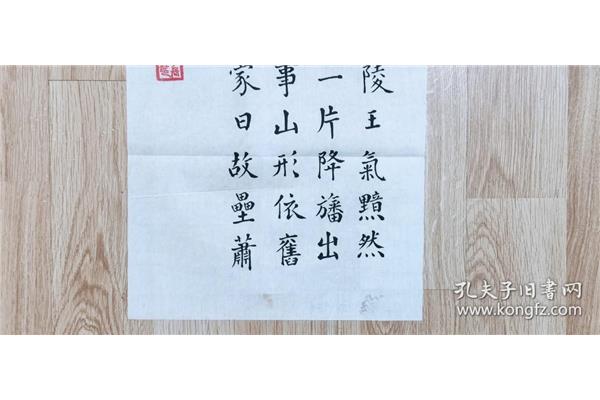 陵王氣黯然
一片降旛出
事山形依舊
家日故壘蕭
孔夫子旧書网
www.kongfz.com